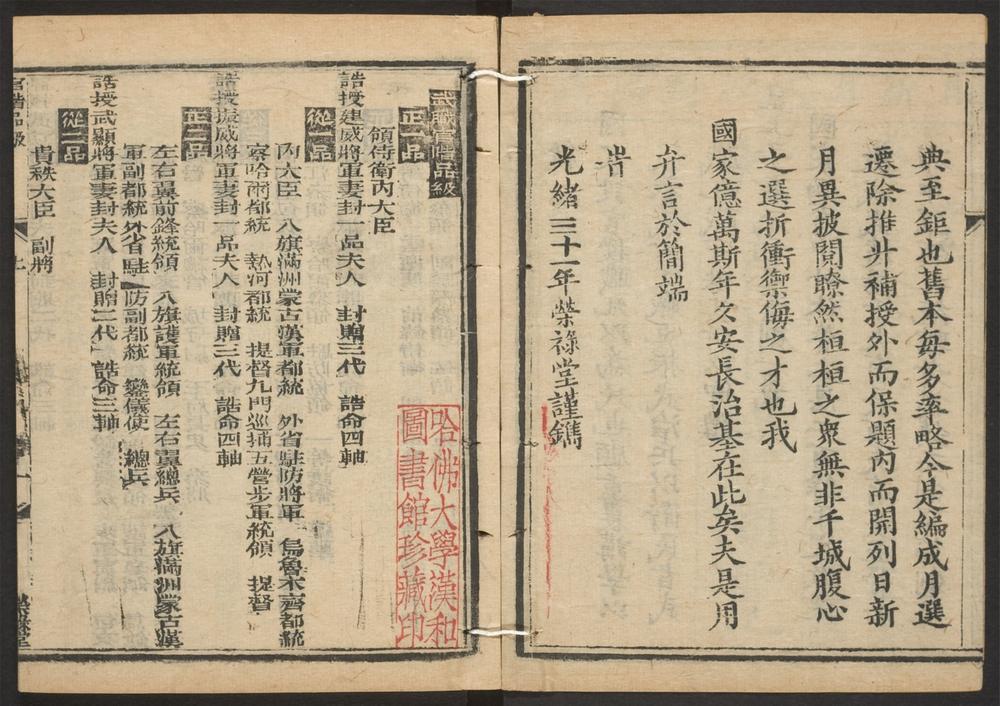 典至鉅也舊本每多率略今是編成月選
遷除推升補授外而保題內而開列日新
月異披閱瞭然桓桓之衆無非千城腹心
之選折衝禦侮之才也我
國家億萬斯年久安長治基在此矣夫是用
弁言於簡端
旹
光緒三十一年榮祿堂謹鐫
武職官階品級
正一品
領侍衛內大臣
誥授建威將軍妻封一品夫人 封贈三代 誥命四軸
從一品
內大臣 八旗滿洲蒙古漢軍都統 外省駐防將軍 烏魯木齊都統
察哈爾都統 熱河都統 提督九門巡捕五營步軍統領 提督
誥授振威將軍妻封一品夫人 封贈三代 誥命四軸
正二品
左右翼前鋒統領 八旗護軍統領 左右翼總兵 八旗滿洲蒙古漢
軍副都統 外省駐防副都統 鑾儀使 總兵
誥授武顯將軍妻封夫人 封贈二代 誥命三軸
從二品
貴秩大臣 副將
官階品級
上
一
榮祿堂
哈佛大學漢和
圖書館珍藏印